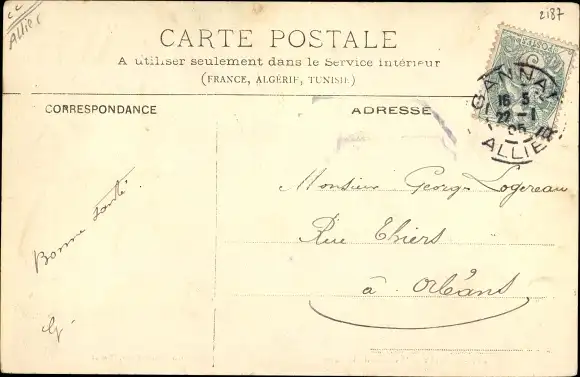 Allier
2187
CARTE POSTALE
A utiliser seulement dans le Service intérieur
(FRANCE, ALGÉRIE, TUNISIE)
CORRESPONDANCE
ADRESSE
GANNAT
16 5
22 - 1
05
ALLIER
Bonne santé.
Monsieur Georg- Logereau
Rue Thiers
à Orléans